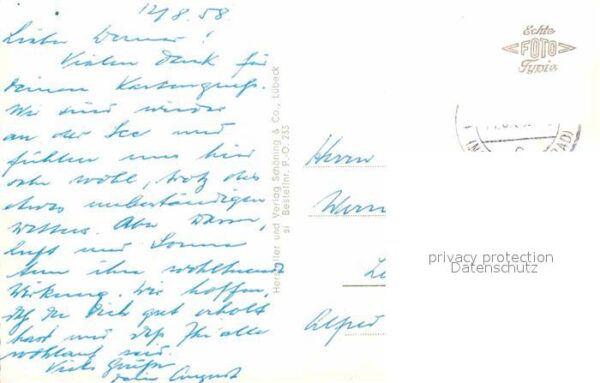 12/8.58
Lieber Werner!
Vielen Dank für
deinen Kartengruß.
Wir sind wieder
an der See und
fühlen uns hier
sehr wohl, trotz des
etwas unbeständigen
Wetters. Aber Wasser,
Luft und Sonne
tun ihre wohltuende
Wirkung. Wir hoffen,
daß du Dich gut erholt
hast und daß Ihr alle
wohlauf seid.
Viele Grüße
dein August
Hersteller und Verlag Schöning & Co., Lübeck
si Bestellnr. P.O. 253
Echte
FOTO
Typie
Herrn
Wern
Alfred
privacy protection
Datenschutz